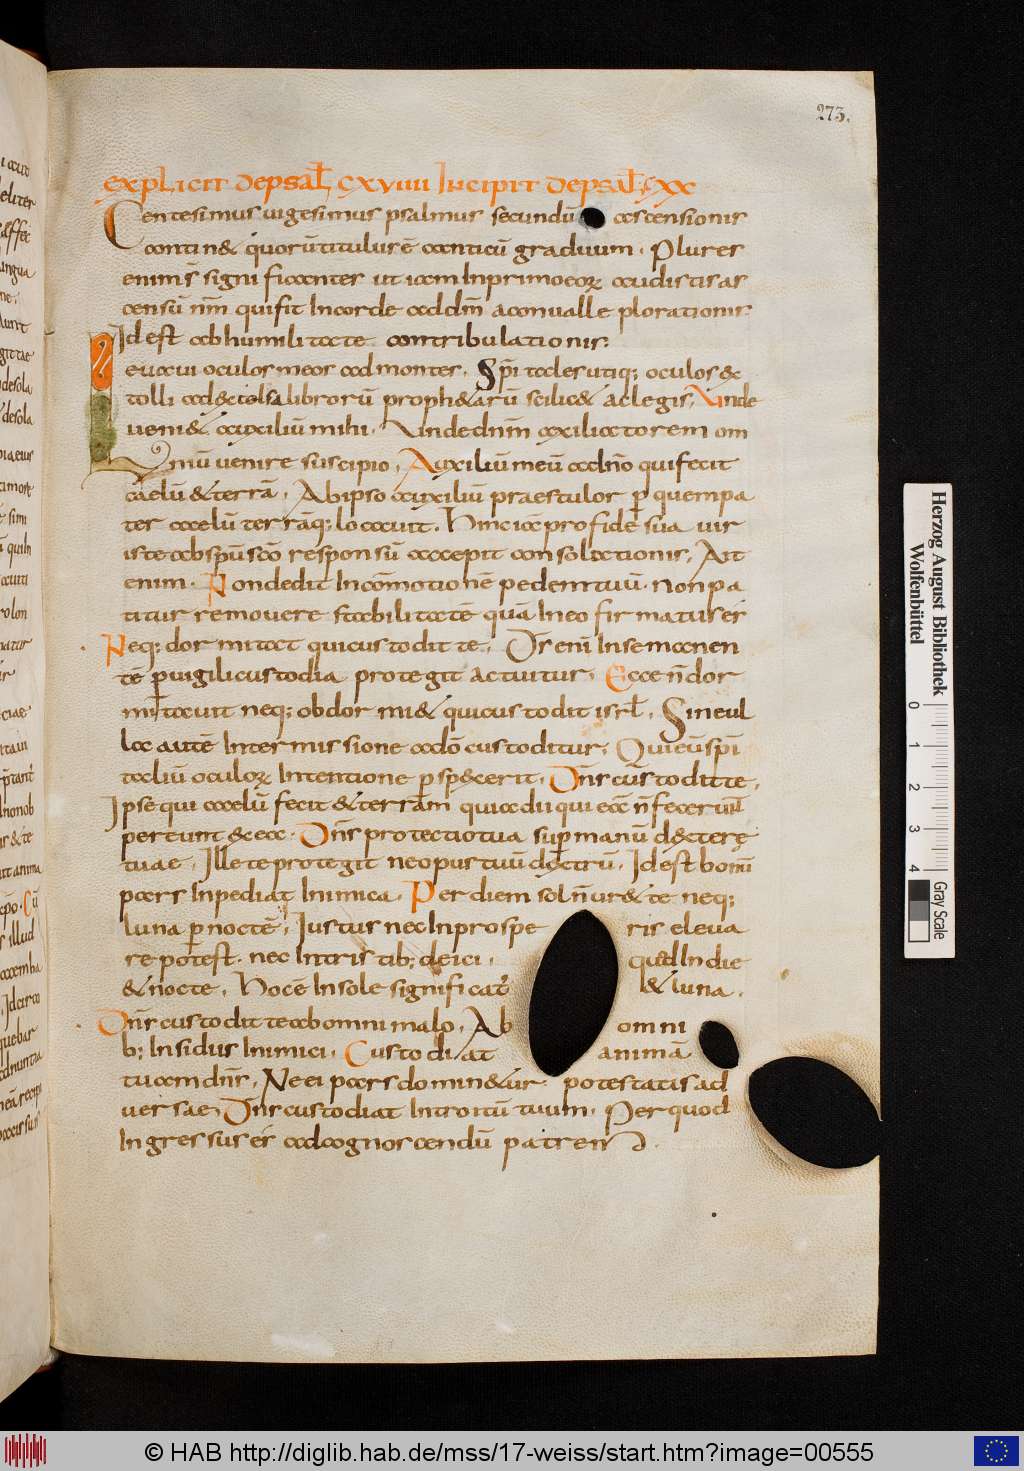 273.
explicit depsal̄ cxviiii Incipit depsal̄ cxx
Centesimus uigesimus psalmus secundū ascensionis
contin& quorū titulus ē canticū graduum. Plures
enim s significanter ut iam In primo eorum audistis as
censū nm̄ qui fit In corde ad dm̄ a conualle plorationis
Id est ab humilitate contribulationis.
euaui oculos meos ad montes. Spī tales utiq; oculos &
tolli ad & celsa librorū proph&arū scilic& ac legis, Unde
ueni& auxiliū mihi. Unde dnm̄ auxiliatorem om
nium uenire suscipio. Auxiliū meū a dno qui fecit
caelū & terrā. Ab ipso auxiliū praestulor p quem pa
ter caelū terrāq; locauit. Hinc iā pro fide sua uir
iste ab spū scō responsū accepit consolationis, Ait
enim. Non dedit In cōmotionē pedem tuū. non pa
titur remouere stabilitatē quā In eo firmatus es
Neq; dormitat qui custodit te. Dr enī In se manen
tē puigili custodia protegit ac tuitur. Ecce n dor
mitauit neq; obdormi& qui custodit isrl. Sine ul
la autē Intermissione a dō custoditur, Qui eū spī
taliū oculorum Intentione pspexerit. Dnr custodit te.
Ipse qui caelū fecit & terram qui a dii qui ea n fecerunt
pereunt & ea. Dnr protectio tua sup manū dextere
tuae. Ille te protegit ne opus tuū dextrū. Id est bonū
pars Inpediat Inimica. Per diem sol n ur& te neq;
luna p noctē. Iustus nec In prospe ris eleua
re potest. nec In tristib; deici. quod In die
& nocte. Hoc ē In sole significat & luna.
Dnr custodit te ab omni malo. Ab omni
b; Insidiis Inimici. Custodiat animā
tuam dnr. Ne ei pars domin&ur potestatis ad
uersae. Dnr custodiat Introitū tuum. Per quod
Ingressus es ad agnoscendū patrem
Herzog August Bibliothek
Wolfenbüttel
0 1 2 3 4
Gray Scale
© HAB http://diglib.hab.de/mss/17-weiss/start.htm?image=00555